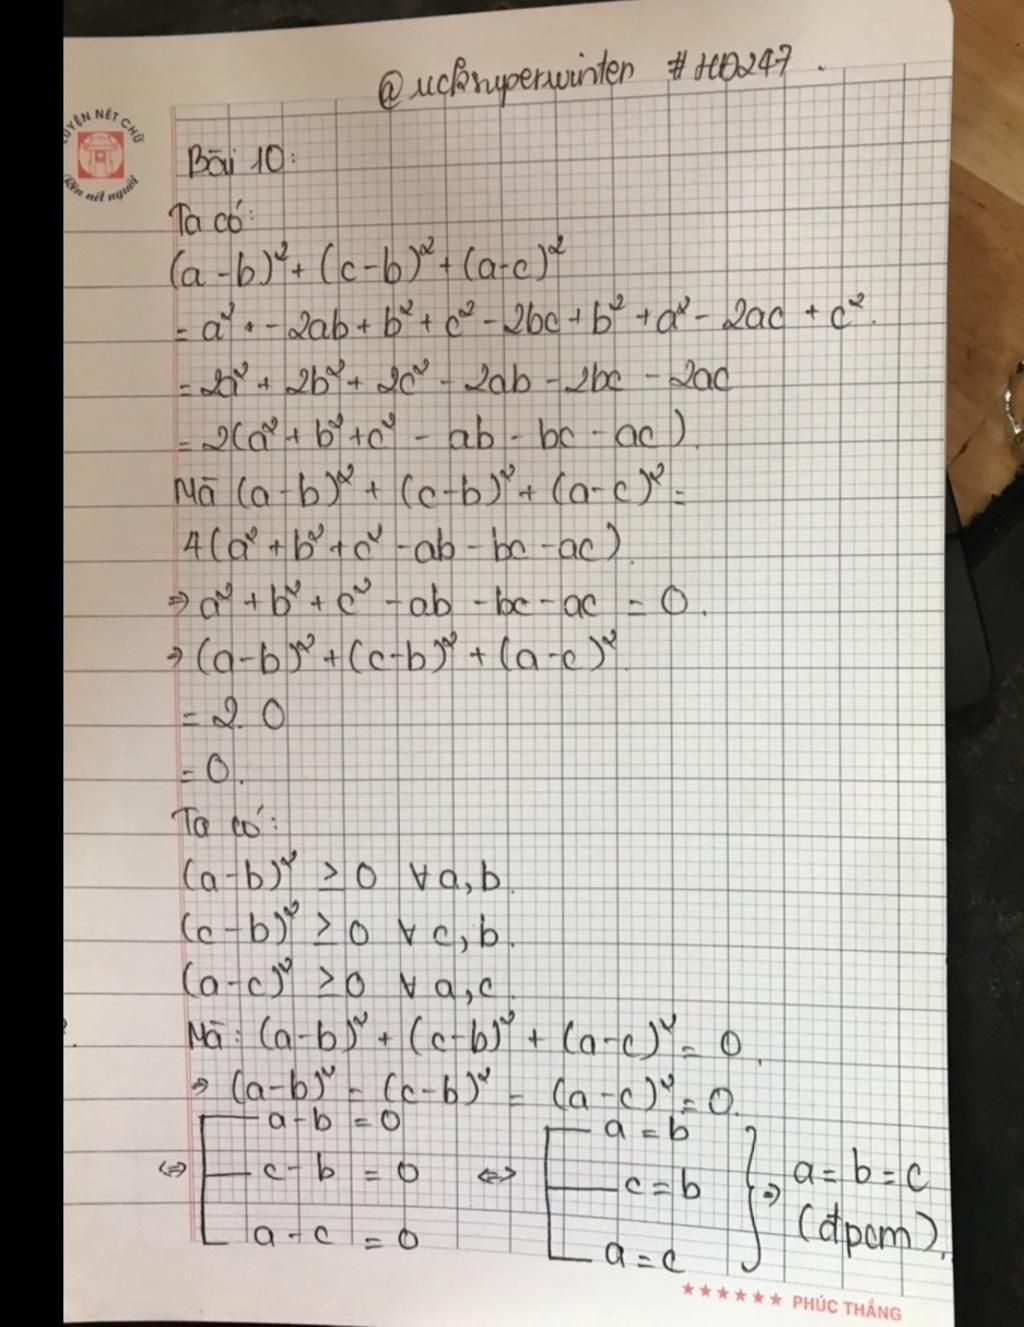 @uckhyperwinter #HD247.
LUYỆN NÉT CHỮ
Rèn nết người
Bài 10:
Ta có:
(a-b)² + (c-b)² + (a-c)²
= a² - 2ab + b² + c² - 2bc + b² + a² - 2ac + c².
= 2a² + 2b² + 2c² - 2ab - 2bc - 2ac
= 2(a² + b² + c² - ab - bc - ac).
Mà (a-b)² + (c-b)² + (a-c)² =
4(a² + b² + c² - ab - bc - ac).
⇒ a² + b² + c² - ab - bc - ac = 0.
⇒ (a-b)² + (c-b)² + (a-c)².
= 2.0
= 0.
Ta có:
(a-b)² ≥ 0 ∀ a,b.
(c-b)² ≥ 0 ∀ c,b.
(a-c)² ≥ 0 ∀ a,c.
Mà: (a-b)² + (c-b)² + (a-c)² = 0.
⇒ (a-b)² = (c-b)² = (a-c)² = 0.
a-b = 0 a = b
⇔ c-b = 0 ⇔ c = b ⇒ a = b = c
a-c = 0 a = c (đpcm).
★★★★★★ PHÚC THẮNG